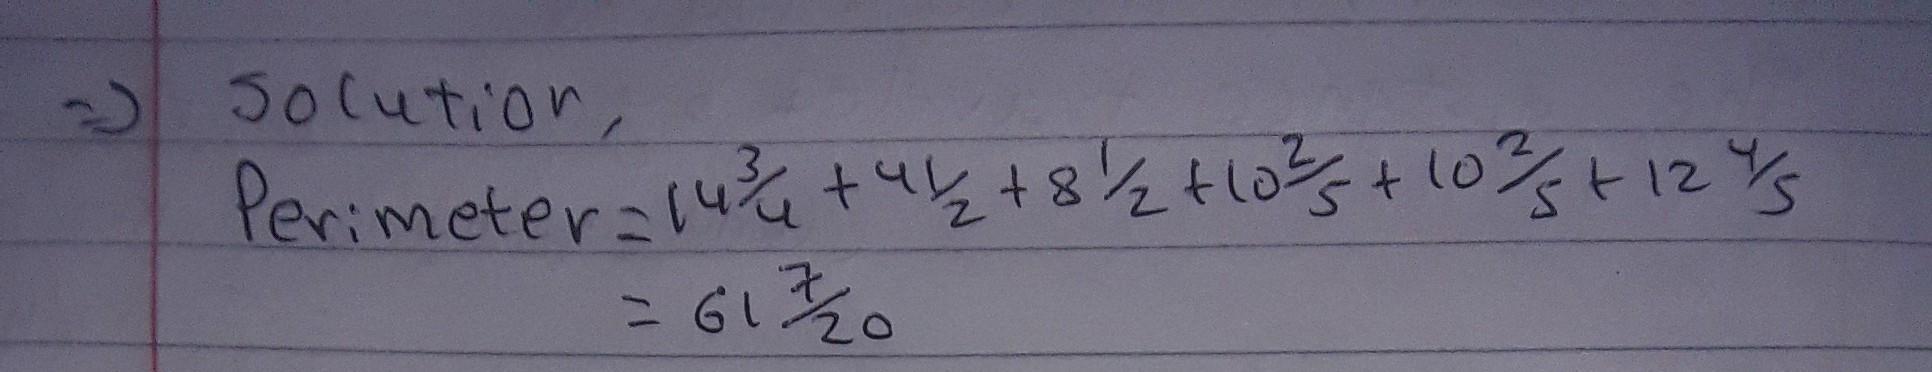 => Solution,
Perimeter = 14 3/4 + 4 1/2 + 8 1/2 + 10 2/5 + 10 2/5 + 12 4/5
= 61 7/20